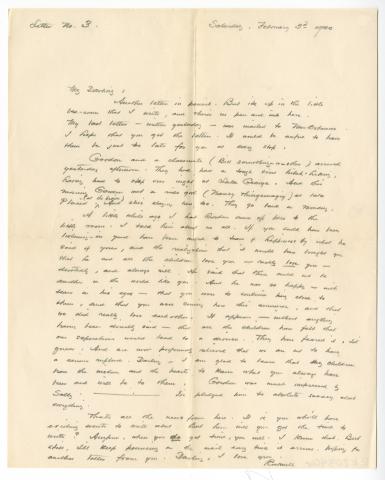 Letter No. 3.
Saturday, February 3rd 1940
My Darling:
Another letter in pencil. But its up in the little
bed-room that I write, and there's no pen and ink here.
My last letter – written yesterday – was mailed to New Orleans
I hope that you get the letter. It would be awful to have
them be just too late for you at every stop.
Gordon and a classmate (Bill something-or-other) arrived
yesterday afternoon. They had had a tough time hitch-hiking,
having had to stop over night at La Grange. And this
morning Gordon and a nice girl (Nancy Thingamagig) at
And she's staying here too. They go back on Monday.
A little while ago I had Gordon come up here to the
room. I told him about us all. If you could have been
listening-in your heart would have ached to tears of happiness by what he
said of you, and the realization that it would have brought you
that he and all the children love you – really love you –
devotedly, and always will. He said that there could not be
another in the world like you. And he was so happy – with
tears in his eyes – that you were to continue being close to
them, and that you were coming here this summer, and that
we did really love each other. It appears – without anything
having been directly said – that all the children have felt that
our separations would lead to a divorce. They have feared it, I'd
guess. And are now profoundly relieved that we are not to have
a serious rupture. Darling, I am glad to learn that my children
have the wisdom and the hearts to know what you always have
been and will be to them. Gordon was most impressed by
Sally: I've pledged him to absolute secrecy about
everything.
That's all the news from here. It is you who'll have
exciting events to write about. But how will you get the time to
write? Anyhow, when you do get time, you will. I know that. But
still, I'll keep pouncing on the mail every time it arrives. hoping for
another letter from you. Darling, I love you.
Rockwell